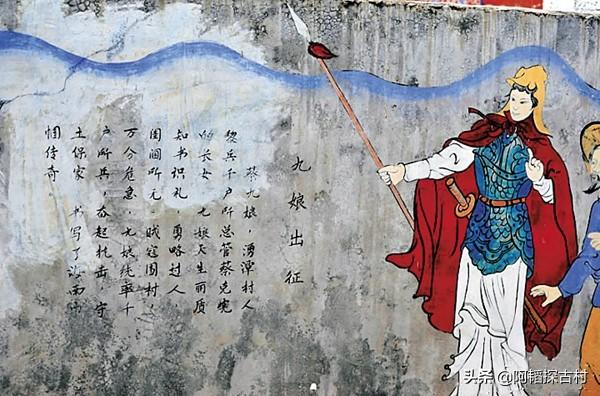 九娘出征
蔡九娘，湧潭村人
黎兵千户所总管蔡克宽
的长女。九娘天生丽质
知书识礼，勇略过人，
闺阃所无。贼寇围村，
万分危急，九娘统率千
户所兵，奋起抗击，守
土保家，书写了海南巾
帼传奇。
头条 @阿韬探古村